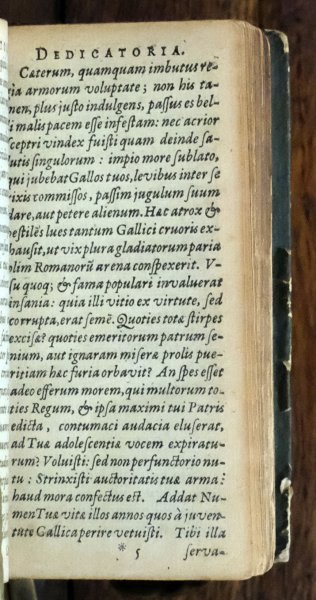 DEDICATORIA.
Cæterum, quamquam imbutus re-
ia armorum voluptate; non his ta-
men, plus justo indulgens, passus es bel-
li malis pacem esse infestam: nec acrior
sceptri vindex fuisti quam deinde sa-
lutis singulorum: impio more sublato,
qui jubebat Gallos tuos, levibus inter se
rixis commissos, passim jugulum suum
dare, aut petere alienum. Hæc atrox &
pestilēs lues tantum Gallici cruoris ex-
hausit, ut vix plura gladiatorum paria
olim Romanorū arena conspexerit. V-
su quoq; & fama populari invaluerat
insania: quia illi vitio ex virtute, sed
corrupta, erat semē. Quoties totæ stirpes
excisæ? quoties emeritorum patrum se-
nium, aut ignaram miseræ prolis pue-
ritiam hæc furia orbavit? An spes esset
adeo efferum morem, qui multorum to-
ties Regum, & ipsa maximi tui Patris
edicta, contumaci audacia eluserat,
ad Tuæ adolescentiæ vocem expiratu-
rum? Voluisti: sed non perfunctorio nu-
tu: Strinxisti auctoritatis tuæ arma:
haud mora confectus est. Addat Nu-
men Tuæ vitæ illos annos quos à juven-
tute Gallica perire vetuisti. Tibi illa
* 5 serva-